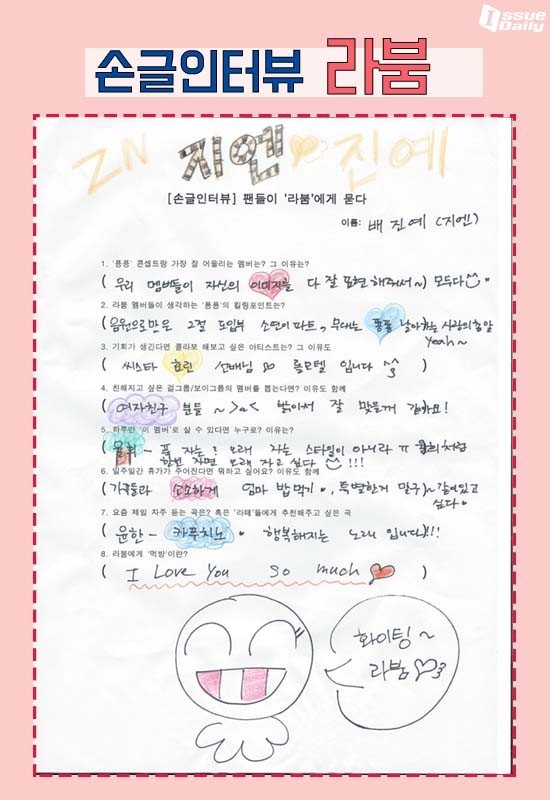 Issue
Daily
손글인터뷰 라붐
ZN 지엔♡진예
[손글인터뷰] 팬들이 '라붐'에게 묻다
이름: 배진예 (지엔)
1. '푱푱' 콘셉트랑 가장 잘 어울리는 멤버는? 그 이유는?
( 우리 멤버들이 자신의 이미지를 다 잘 표현해주어서~) 모두다
2. 라붐 멤버들이 생각하는 '푱푱'의 킬링포인트는?
(음원으로만은 그걸 도입부 소연이 파트, 무대는 푱푱 날아가는 사랑의 총알
Yeah~
3. 기회가 생긴다면 콜라보 해보고 싶은 아티스트는? 그 이유도
( 씨스타 효린 선배님 롤모델 입니다 )
4. 친해지고 싶은 걸그룹/보이그룹의 멤버를 뽑는다면? 이유도 함께
(여자친구 분들 ~ >_< 밝아서 잘 맞을게 같아요!
5. 하루만 '이 멤버'로 살 수 있다면 누구로? 이유는?
율희 - 푹 자는? 오래 자는 스타일이 아니라 ㅠ 율희처럼
한번 자면 오래 자고 싶다 !!!
6. 일주일간 휴가가 주어진다면 뭐하고 싶어요? 이유도 함께
(가족들과 소소하게 엄마 밥먹기, 특별한거 말구)~ 같이있고
싶다
7. 요즘 제일 자주 듣는 곡은? 혹은 '라떼'들에게 추천해주고 싶은 곡
( 윤한 - 카푸치노 행복해지는 노래 입니다)!!!
8. 라붐에게 '먹방'이란?
( I Love You so much ♥ )
화이팅~
라붐♡